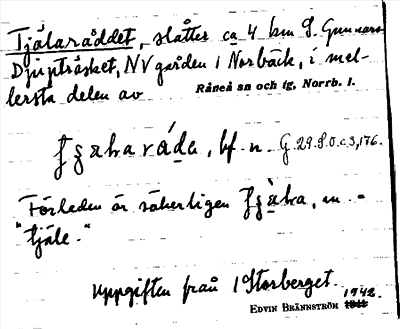 Tjälaråddet, slåtter ca 4 km S. Gunnars-
Djupträsket, NV gården i Norbäck, i mel-
lersta delen av Råneå sn och tg, Norrb. l.
bf. n. G. 29.S.O.c.3,176.
Förleden är säkerligen
"tjäle."
Uppgiften från 1 Storberget.
EDVIN BRÄNNSTRÖM 1942.